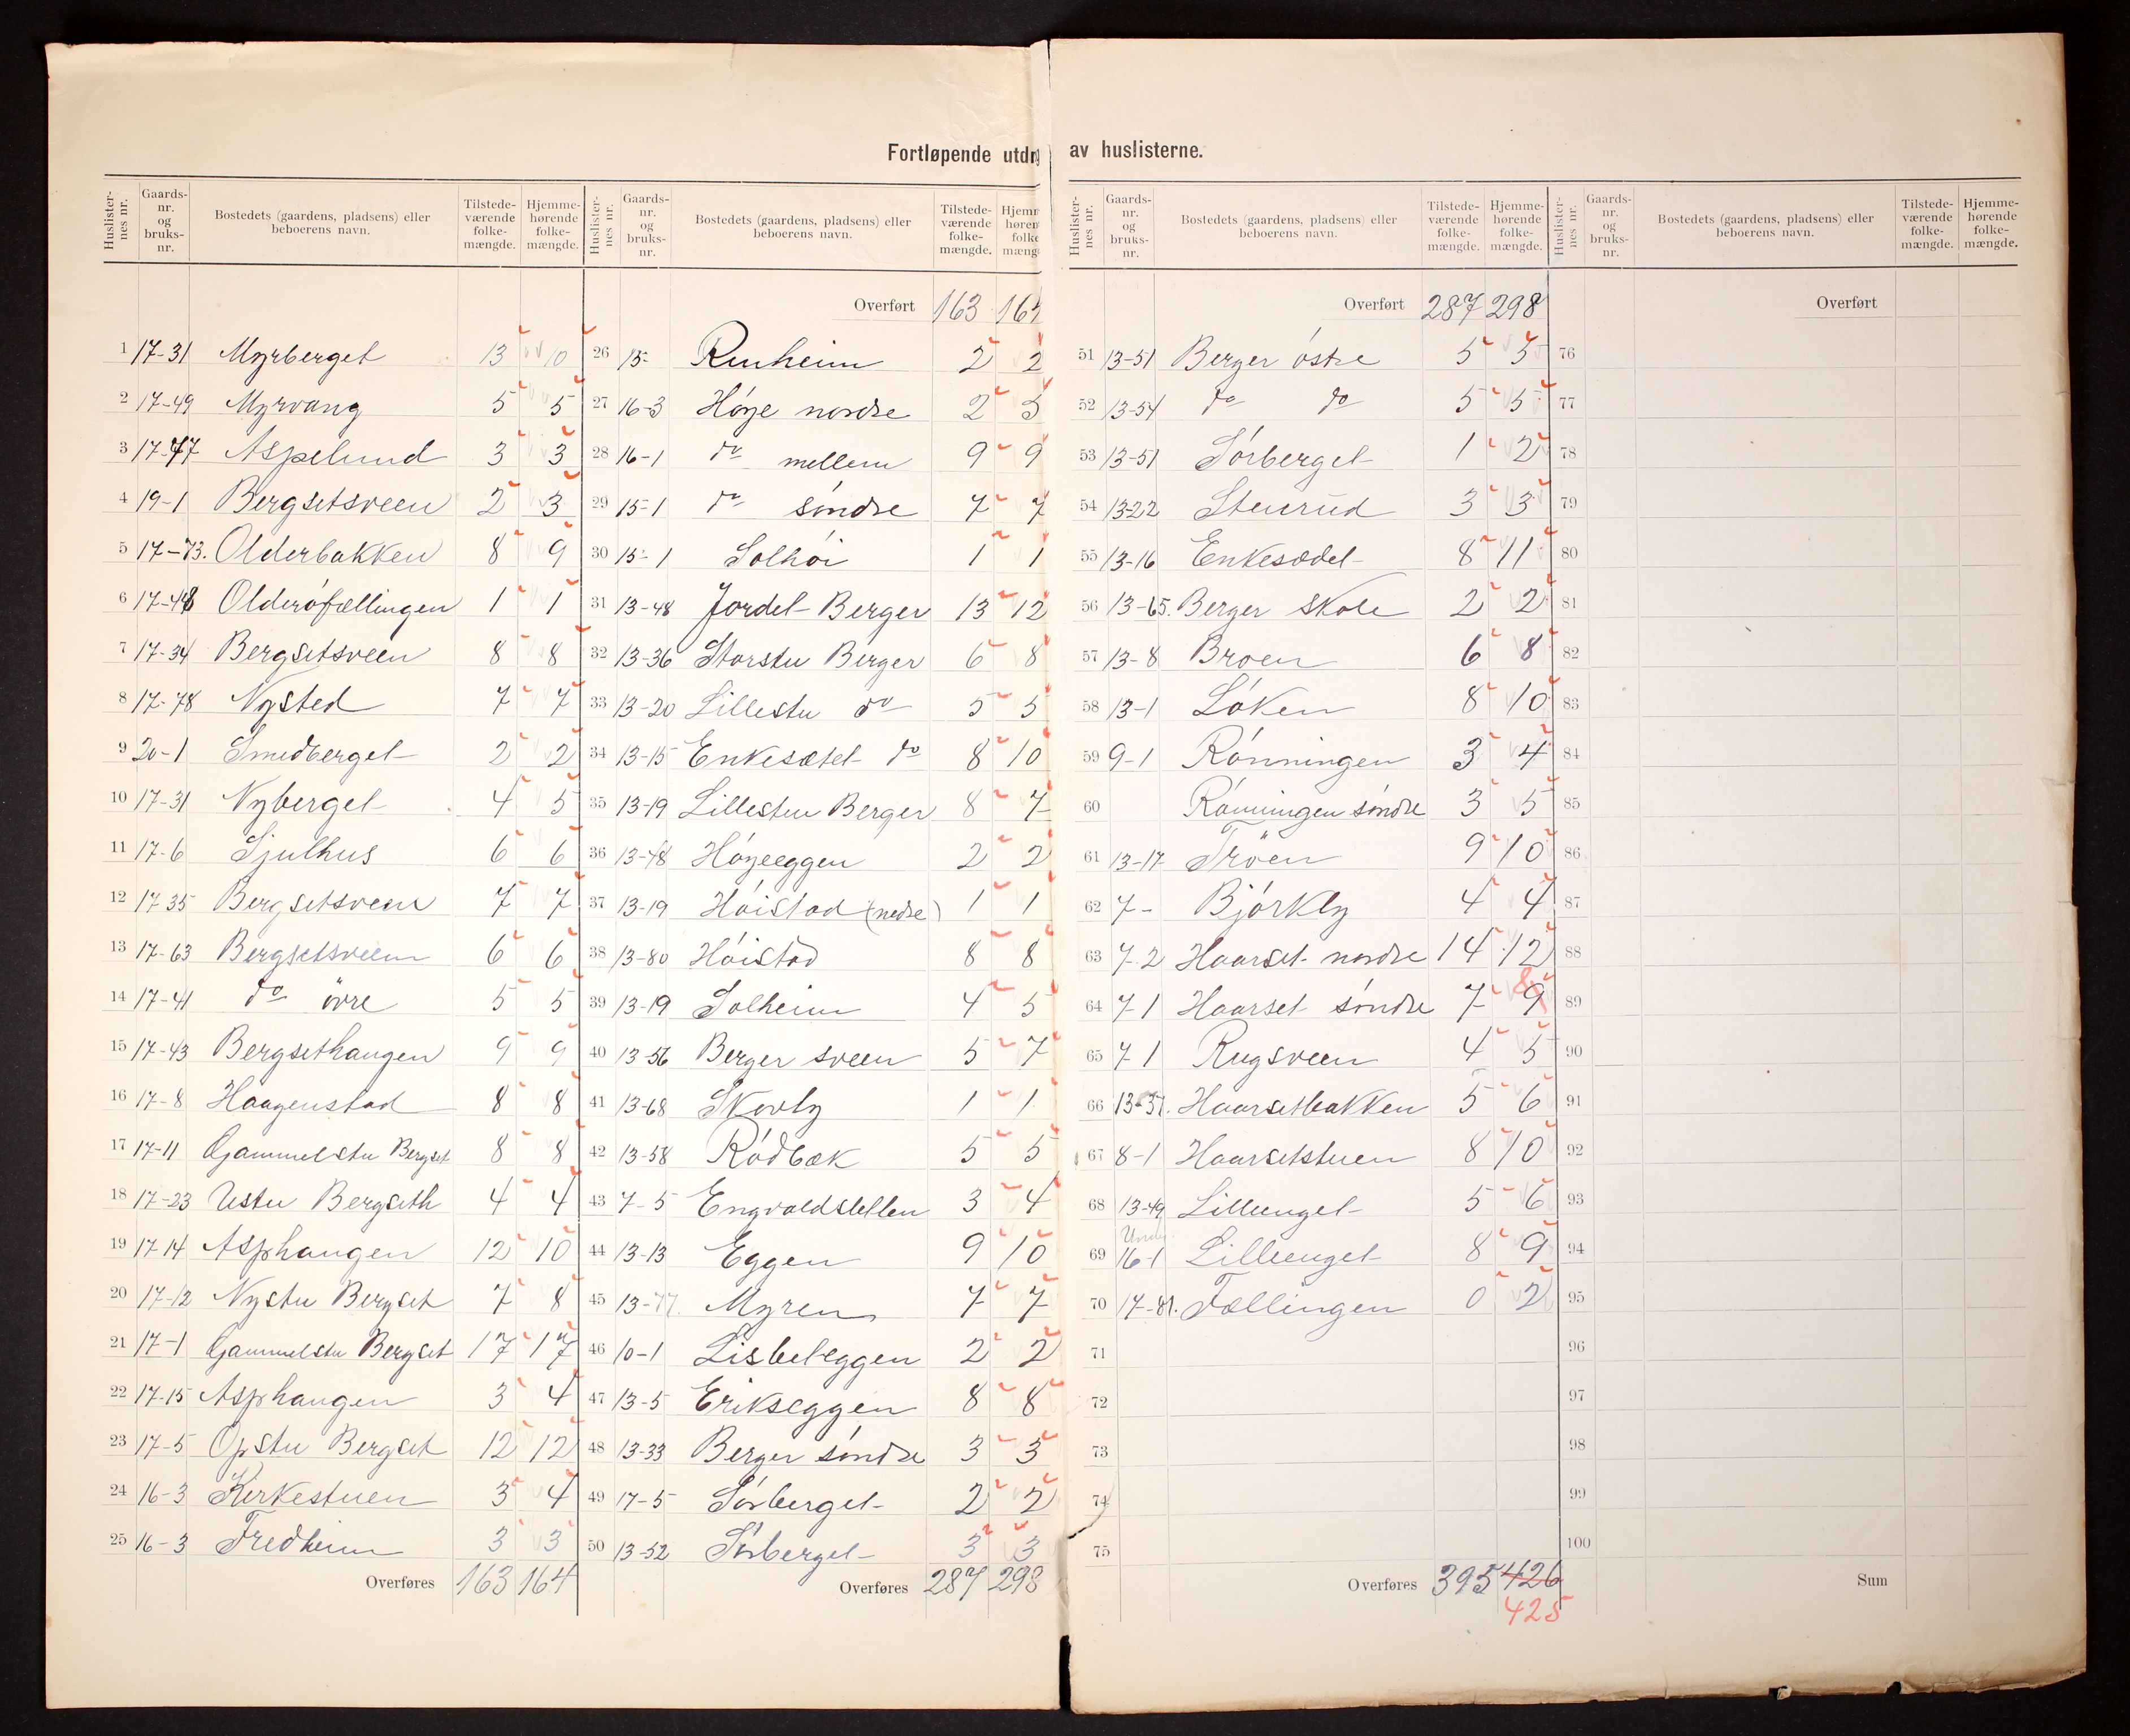 Fortløpende utdr av huslisterne.
Huslisternes nr. | Gaards-nr. og bruks-nr. | Bostedets (gaardens, pladsens) eller beboerens navn. | Tilstede-værende folke-mængde. | Hjemme-hørende folke-mængde.
1 17-31 Myrberget 13 10
2 17-49 Myrvang 5 5
3 17-47 Aspelund 3 3
4 19-1 Bergsetsveen 2 3
5 17-73. Olderbakken 8 9
6 17-48 Olderöfællingen 1 1
7 17-34 Bergsetsveen 8 8
8 17-78 Nysted 7 7
9 20-1 Smedberget 2 2
10 17-31 Nyberget 4 5
11 17-6 Sjulhus 6 6
12 17-35 Bergsetsveen 7 7
13 17-63 Bergsetsveen 6 6
14 17-41 do övre 5 5
15 17-43 Bergsethaugen 9 9
16 17-8 Haagenstad 8 8
17 17-11 Gammelstu Bergset 8 8
18 17-23 Ustu Bergseth 4 4
19 17-14 Asphaugen 12 10
20 17-12 Nystu Bergset 7 8
21 17-1 Gammelstu Bergset 17 17
22 17-15 Asphaugen 3 4
23 17-5 Opstu Bergset 12 12
24 16-3 Kirkestuen 3 4
25 16-3 Fredheim 3 3
Overføres 163 164
Huslisternes nr. | Gaards-nr. og bruks-nr. | Bostedets (gaardens, pladsens) eller beboerens navn. | Tilstede-værende folke-mængde. | Hjemm høren folke mæng
Overført 163 164
26 15- Renheim 2 2
27 16-3 Høye nordre 2 3
28 16-1 do mellem 9 9
29 15-1 do søndre 7 7
30 15-1 Solhöi 1 1
31 13-48 Jordet Berger 13 12
32 13-36 Storstu Berger 6 8
33 13-20 Lillestu do 5 5
34 13-15 Enkesætet do 8 10
35 13-19 Lillestu Berger 8 7
36 13-48 Høyeeggen 2 2
37 13-19 Höistad (nedre) 1 1
38 13-80 Höistad 8 8
39 13-19 Solheim 4 5
40 13-56 Berger sveen 5 7
41 13-68 Skovly 1 1
42 13-58 Rödbæk 5 5
43 7-5 Engvoldsletten 3 4
44 13-13 Eggen 9 10
45 13-77. Myren 7 7
46 10-1 Lisbeteggen 2 2
47 13-5 Erikseggen 8 8
48 13-33 Berger söndre 3 3
49 17-5 Sörberget 2 2
50 13-52 Sörberget 3 3
Overføres 287 298
Huslister-nes nr. | Gaards-nr. og bruks-nr. | Bostedets (gaardens, pladsens) eller beboerens navn. | Tilstede-værende folke-mængde. | Hjemme-hørende folke-mængde.
Overført 287 298
51 13-51 Berger östre 5 5
52 13-54 do do 5 5
53 13-51 Sörberget 1 2
54 13-22 Stenrud 3 3
55 13-16 Enkesædet 8 11
56 13-65. Berger skole 2 2
57 13-8 Broen 6 8
58 13-1 Löken 8 10
59 9-1 Rönningen 3 4
60 Rönningen söndre 3 5
61 13-17 Tröen 9 10
62 7- Björkly 4 4
63 7-2 Haarset nordre 14 12
64 7 1 Haarset söndre 7 9 8
65 7 1 Rugsveen 4 5
66 13-37. Haarsetbakken 5 6
67 8-1 Haarsetstuen 8 10
68 13-49 Lilleenget 5 6
69 16-1 Lilleenget 8 9
70 17-81. Fællingen 0 2
71
72
73
74
75
Overføres 395 426
425
Huslister-nes nr. | Gaards-nr. og bruks-nr. | Bostedets (gaardens, pladsens) eller beboerens navn. | Tilstede-værende folke-mængde. | Hjemme-hørende folke-mængde.
Overført
76
77
78
79
80
81
82
83
84
85
86
87
88
89
90
91
92
93
94
95
96
97
98
99
100
Sum